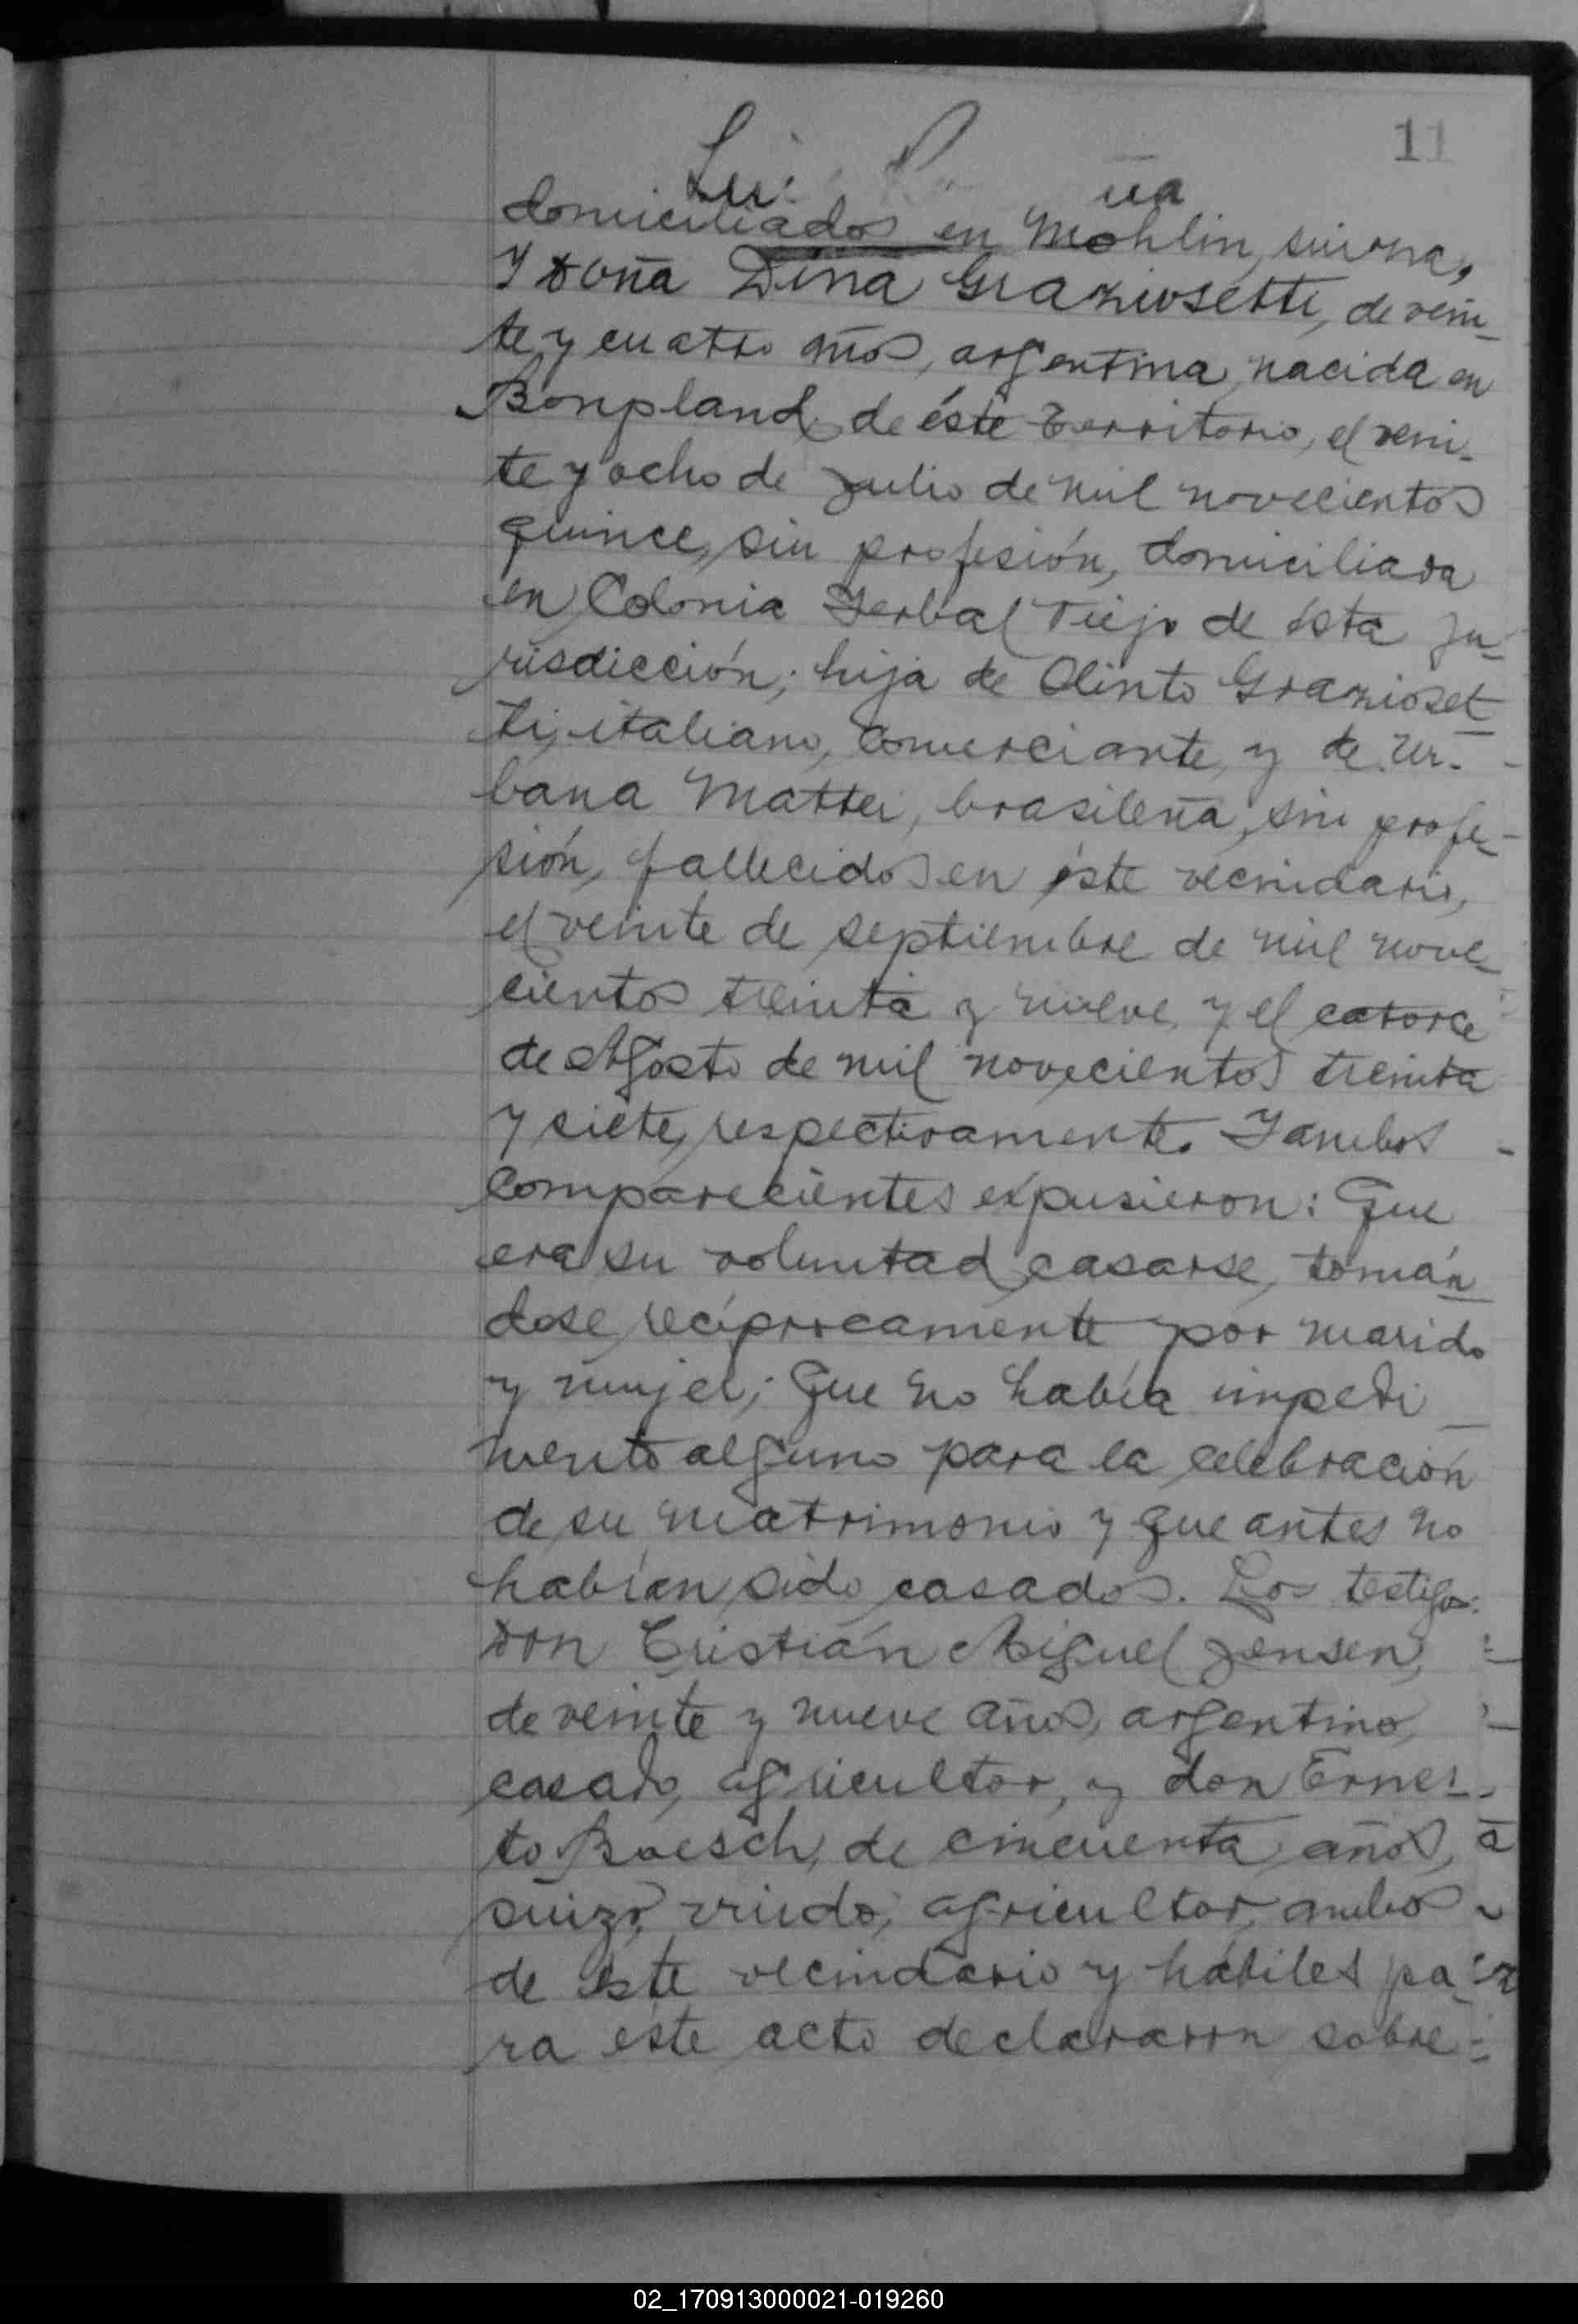 11
domiciliados en Mohlin, suiona,
Y Doña Dina Graziosetti, de vein_
te y cuatro años, argentina, nacida en
Bonpland de éste Territorio, el vein_
te y ocho de Julio de mil novecientos
quince, sin profesión, domiciliada
en Colonia Yerbal Viejo de ésta ju_
risdicción; hija de Olinto Grazioset_
ti, italiano, comerciante, y de Ur_
bana Mattei, brasileña, sin profe_
sión, fallecidos en éste vecindario,
el veinte de septiembre de mil nove_
cientos treinta y nueve, y el catorce
de Agosto de mil novecientos treinta
y siete, respectivamente. Y ambos
comparecientes expusieron: Que
era su voluntad casarse, tomán_
dose recíprocamente por marido
y mujer; Que no había impedi_
mento alguno para la celebración
de su matrimonio y que antes no
habían sido casados. Los testigos:
Don Cristián Miguel Jensen,
de veinte y nueve años, argentino,
casado, agricultor, y don Ernes_
to Boesch, de cincuenta años,
suizo, viudo, agricultor, ambos
de éste vecindario y hábiles pa_
ra éste acto declararon sobre
02_170913000021-019260